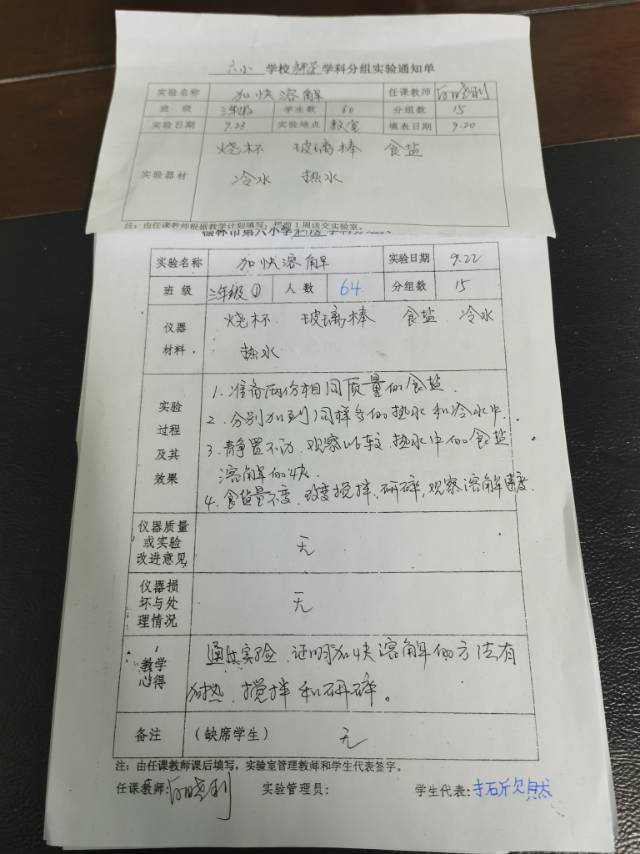 六小 学校 科学 学科分组实验通知单
实验名称 加快溶解 任课教师
班 级 三年级 学生数 60 分组数 15
实验日期 9.23 实验地点 教室 填表日期 9.20
实验器材 烧杯 玻璃棒 食盐
冷水 热水
注：由任课教师根据教学计划填写，提前1周送交实验室。
榆林市第六小学
实验名称 加快溶解 实验日期 9.22
班 级 三年级① 人 数 64 分组数 15
仪器材料 烧杯 玻璃棒 食盐 冷水
热水
实验过程及其效果
1.准备两份相同质量的食盐.
2.分别加到同样多的热水和冷水中.
3.静置不动.观察比较.热水中的食盐
溶解的快.
4.食盐量不变.改变搅拌.研碎,观察溶解速度.
仪器质量或实验改进意见 无
仪器损坏与处理情况 无
教学心得 通过实验.证明加快溶解的方法有
加热.搅拌和研碎。
备注 (缺席学生) 无
注：由任课教师课后填写，实验室管理教师和学生代表签字。
任课教师: 实验管理员: 学生代表: